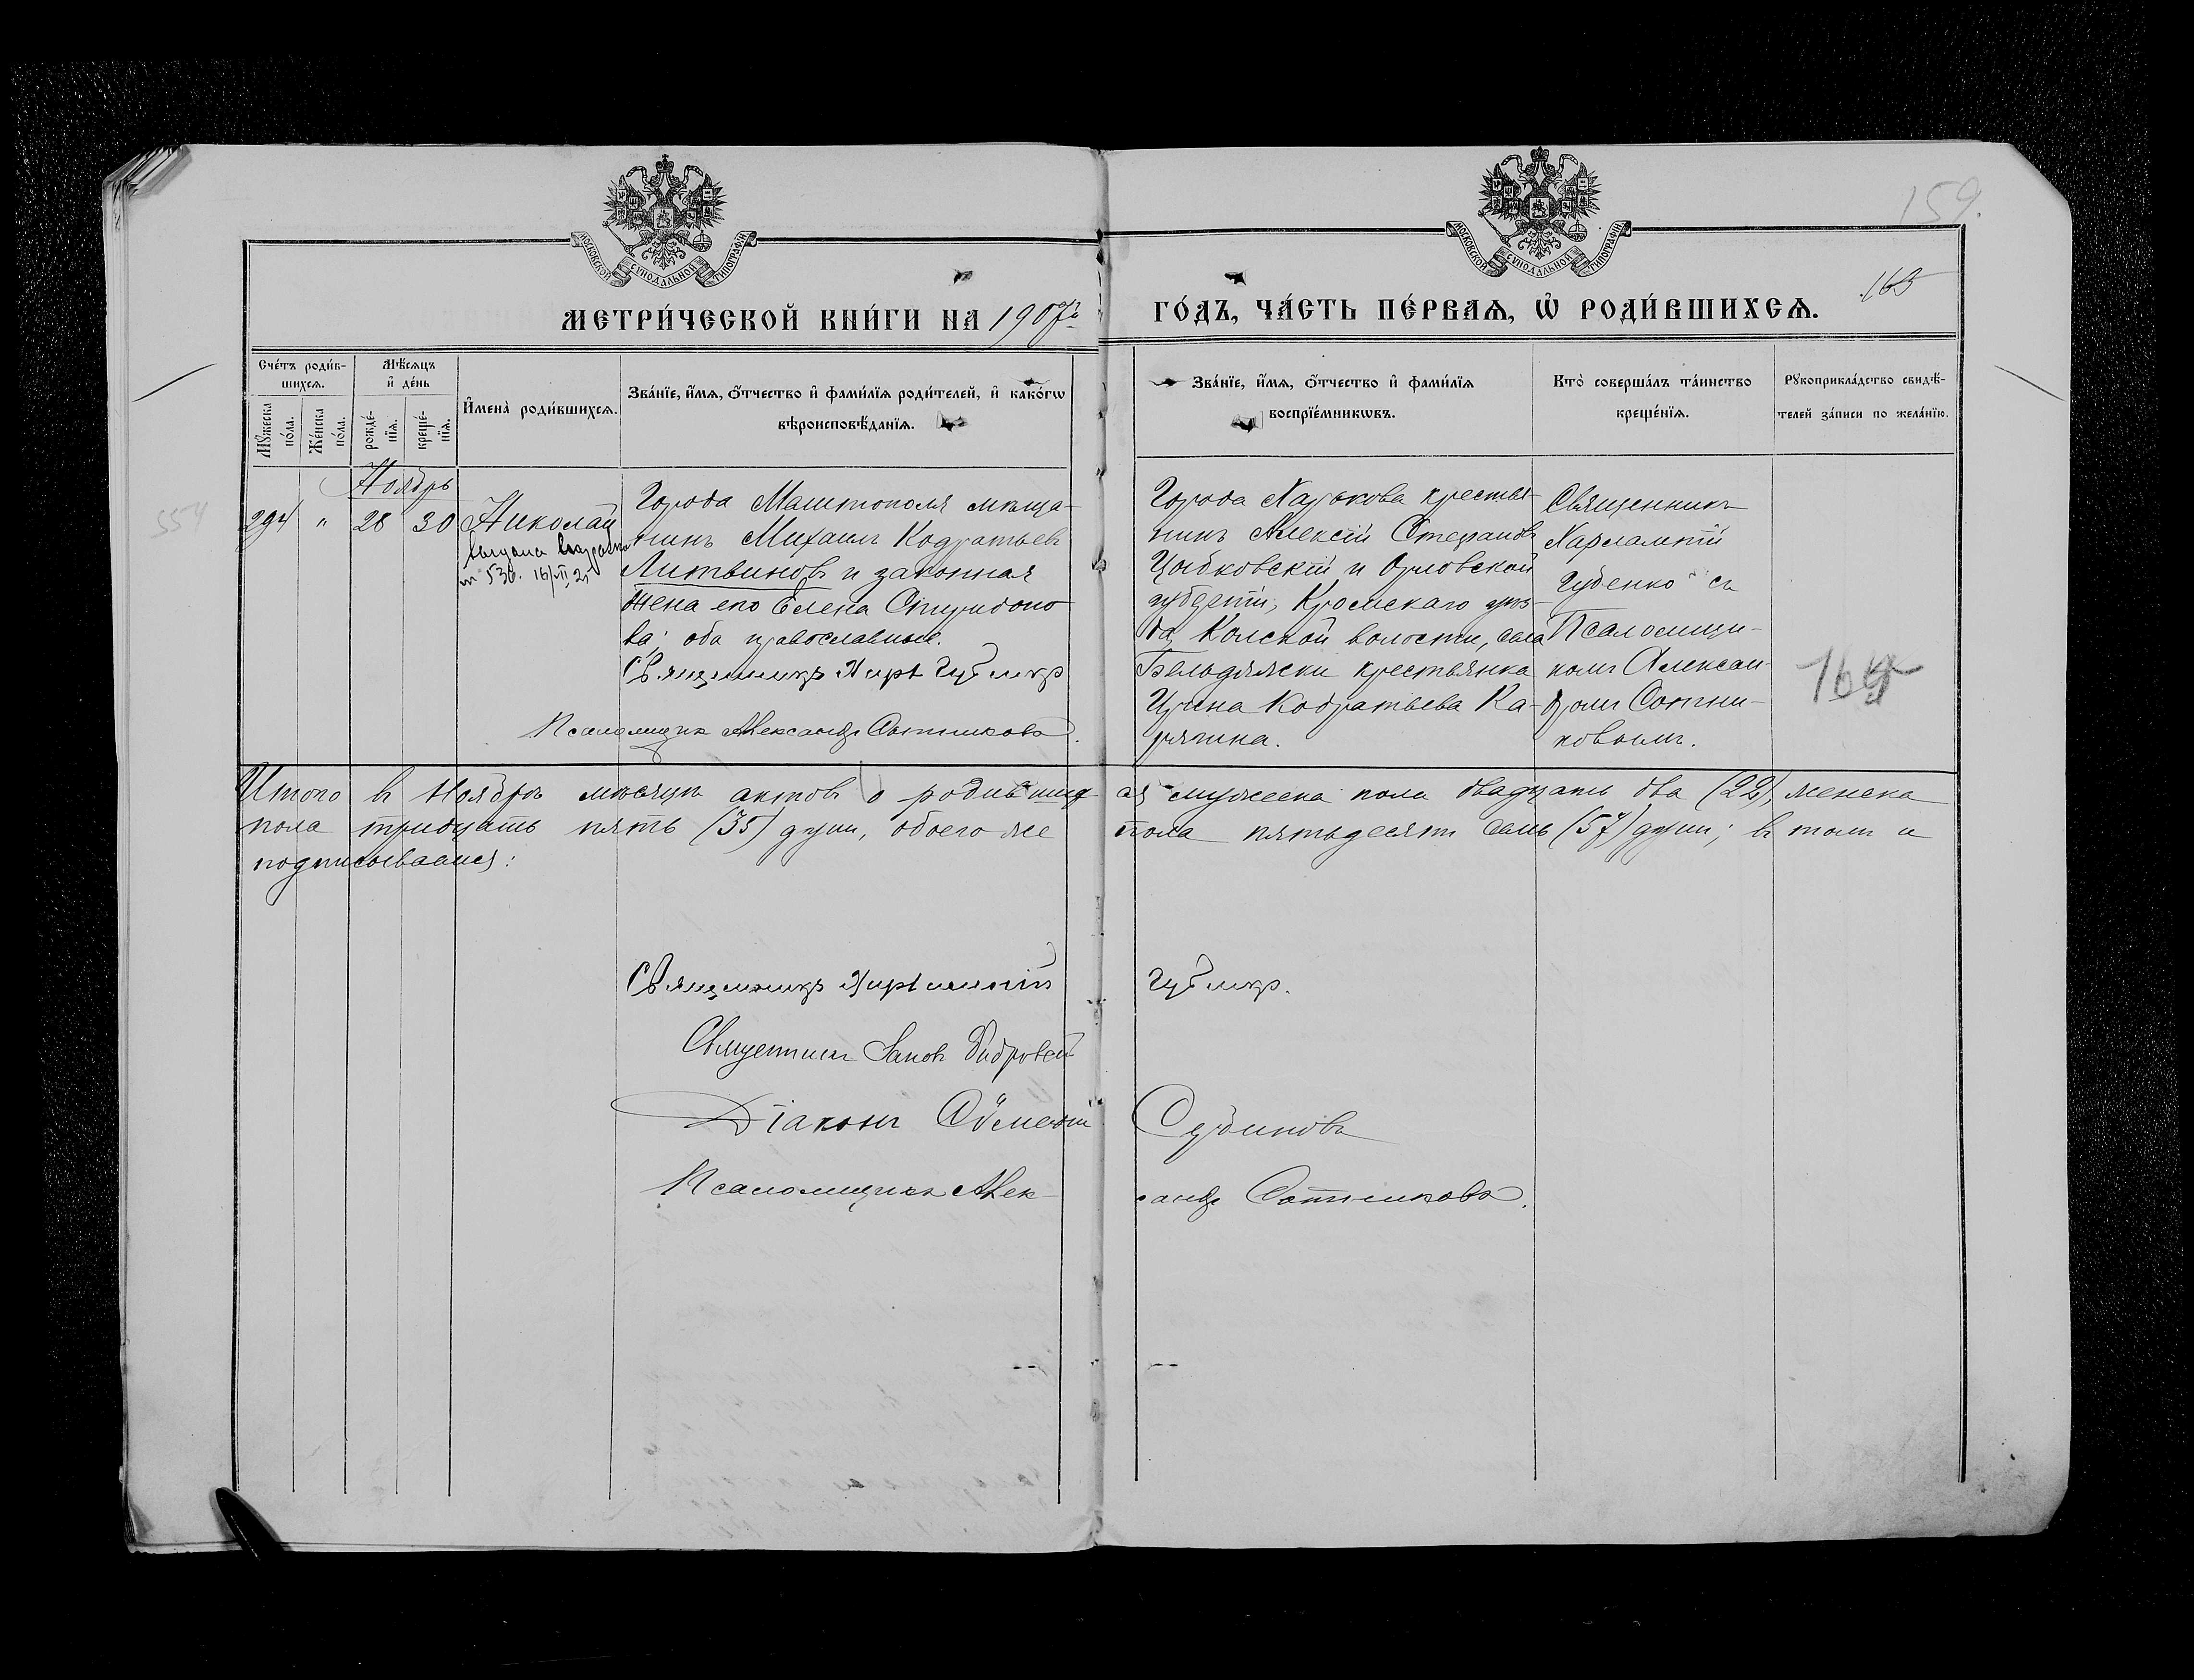 159.
163
МОСКОВСКОЙ СУНОДАЛЬНОЙ ТИПОГРАФІИ
МОСКОВСКОЙ СУНОДАЛЬНОЙ ТИПОГРАФІИ
МЕТРИ́ЧЕСКОЙ КНИ́ГИ НА 1907й
ГО́ДЪ, ЧА́СТЬ ПЕ́РВАѦ, Ѡ҆ РОДИ́ВШИХСѦ.
Сче́тъ роди́вшихсѧ.
Му́жеска по́ла.
Же́нска по́ла.
Мѣ́сѧцъ и҆ де́нь
рожде́нїѧ.
креще́нїѧ.
И҆мена̀ роди́вшихсѧ.
Зва́нїе, и҆́мѧ, о҆́тчество и҆ фами́лїѧ роди́телей, и҆ како́гѡ
вѣроисповѣ́данїѧ.
Зва́нїе, и҆́мѧ, о҆́тчество и҆ фами́лїѧ
воспрїе́мникѡвъ.
Кто̀ соверша́лъ та́инство
креще́нїѧ.
Рукоприкла́дство свидѣ́-
телей за́писи по жела́нїю.
Ноябрь
554
294 " 28 30
Николай
Города Мамтополя мѣща-
нинъ Михаилъ Кодратьевъ
Литвиновъ и законная
жена его Елена Спиридоно-
ва; оба православные.
Священникъ Харл Губенко
Псаломщикъ Александръ Сотниковъ.
Города Харькова крестья-
нинъ Алексій Стефановъ
Цыбковскій и Орловской
губерніи, Кромскаго уѣз-
да, волости, села
Бельдяжки крестьянка
Ирина Кодратьева Ка-
рягина.
Священникъ
Харлампій
Губенко съ
Псаломщи-
комъ Алексан-
дромъ Сотни-
ковымъ.
164
Итого въ Ноябрѣ мѣсяцѣ актовъ о родившихся мужеска пола двадцать два (22), женска
пола тридцать пять (35) душъ, обоего же пола пятьдесятъ семь (57) душъ; въ томъ и
подписываемся:
Священникъ Харлампій Губенко.
Священникъ Іаковъ
Діаконъ Судиковъ
Псаломщикъ Александръ Сотниковъ.